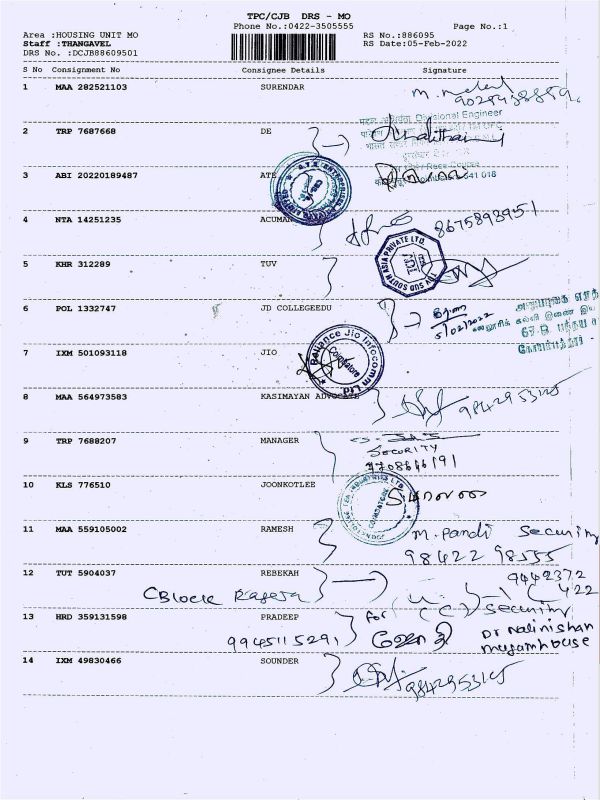 TPC/CJB DRS - MO
Phone No.:0422-3505555 Page No.:1
Area :HOUSING UNIT MO RS No.:886095
Staff :THANGAVEL RS Date:05-Feb-2022
DRS No. :DCJB88609501
S No Consignment No Consignee Details Signature
1 MAA 282521103 SURENDAR
2 TRP 7687668 DE
Divisional Engineer
Race Course
641 018
3 ABI 20220189487 ATE
4 NTA 14251235 ACUMAN 8675898951
5 KHR 312289 TUV
TUV SUD SOUTH ASIA PRIVATE LTD.
6 POL 1332747 JD COLLEGEEDU
5/02/2022
7 IXM 501093118 JIO
Reliance Jio Infocomm Ltd
Coimbatore
8 MAA 564973583 KASIMAYAN ADVOCATE 9842953125
9 TRP 7688207 MANAGER
SECURITY
10 KLS 776510 JOONKOTLEE
COIMBATORE
11 MAA 559105002 RAMESH M. Pandi Security
98422 98555
12 TUT 5904037 REBEKAH 9442372
422
C Block Raseea
13 HRD 359131598 PRADEEP for (CC) Security
9945115291 Dr Nalinishan
mugamhouse
14 IXM 49830466 SOUNDER
9842953125